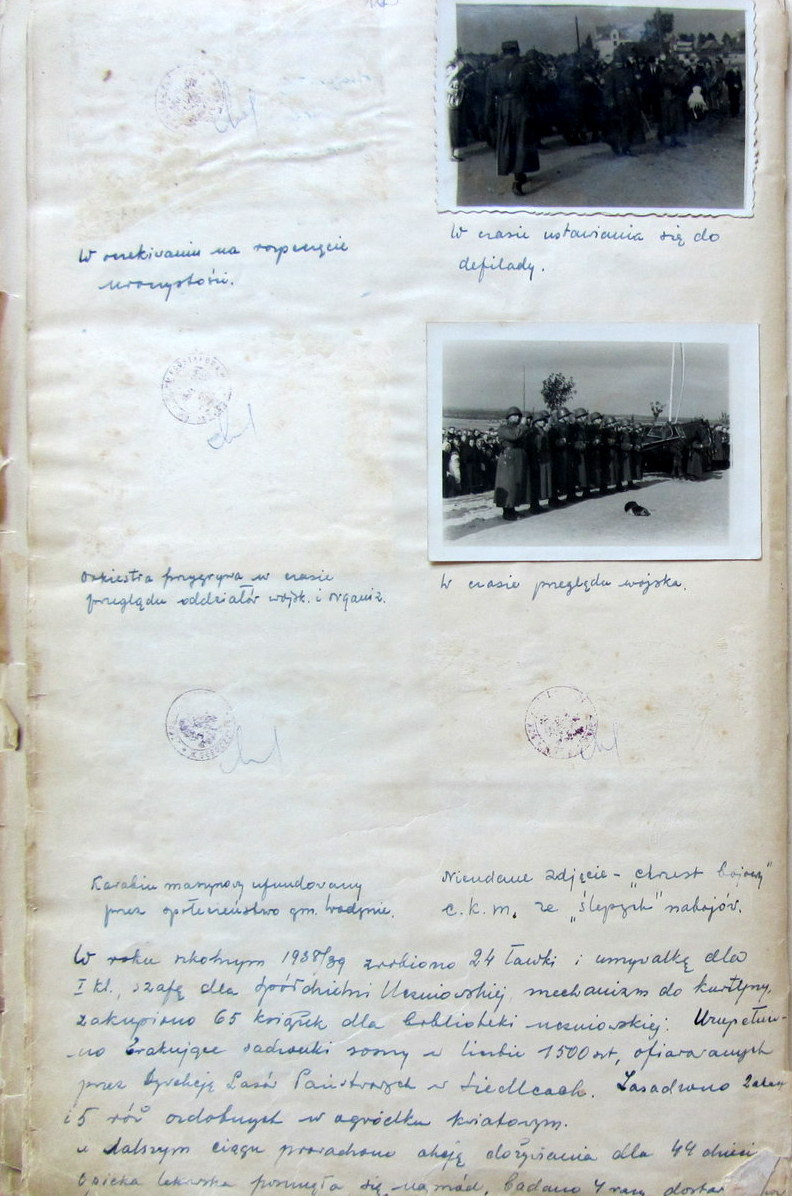 W oczekiwaniu na rozpoczęcie
uroczystości.
W czasie ustawiania się do
defilady.
Orkiestra przygrywa w czasie
przeglądu oddziałów wojsk. i organiz.
W czasie przeglądu wojska.
Karabin maszynowy ufundowany
przez społeczeństwo gm. Wodynie.
Nieudane zdjęcie - "chrzest bojowy"
c.k.m. ze "ślepych" nabojów.
W roku szkolnym 1938/39 zrobiono 24 ławki i umywalkę dla
I kl., szafę dla Spółdzielni Uczniowskiej, mechanizm do kurtyny,
zakupiono 65 książek dla biblioteki uczniowskiej. Uzupełnio-
no brakujące sadzonki sosny w liczbie 1500 szt, ofiarowanych
przez Dyrekcję Lasów Państwowych w Siedlcach. Zasadzono
i 5 róż ozdobnych w ogródku kwiatowym.
W dalszym ciągu prowadzono akcję dożywiania dla 44 dzieci
Opieka lekarska posunęła się naprzód, badano 4 razy